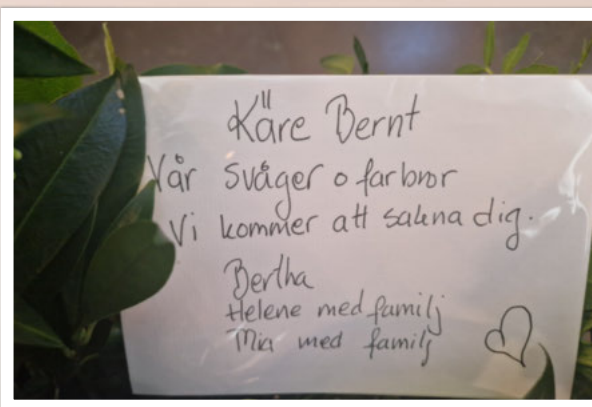 Käre Bernt
Vår svåger o farbror
Vi kommer att sakna dig.
Bertha
Helene med familj
Mia med familj